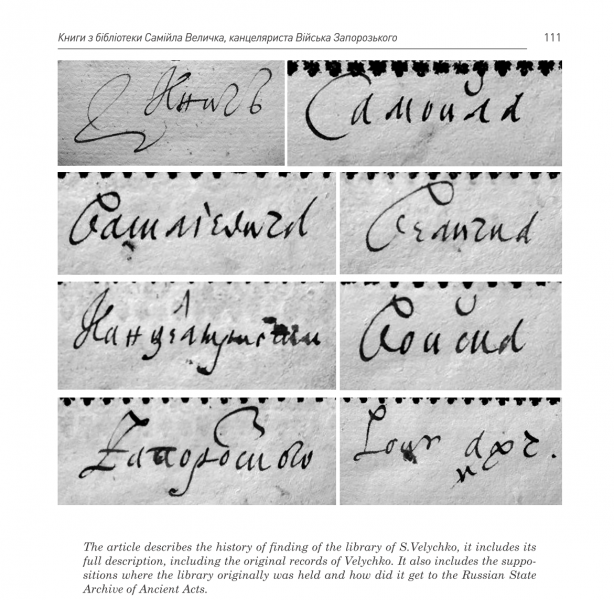 Книги з бібліотеки Самійла Величка, канцеляриста Війська Запорозького 111
Книгъ Самойла
Василіевича Величка
Войска
The article describes the history of finding of the library of S.Velychko, it includes its
full description, including the original records of Velychko. It also includes the suppo-
sitions where the library originally was held and how did it get to the Russian State
Archive of Ancient Acts.